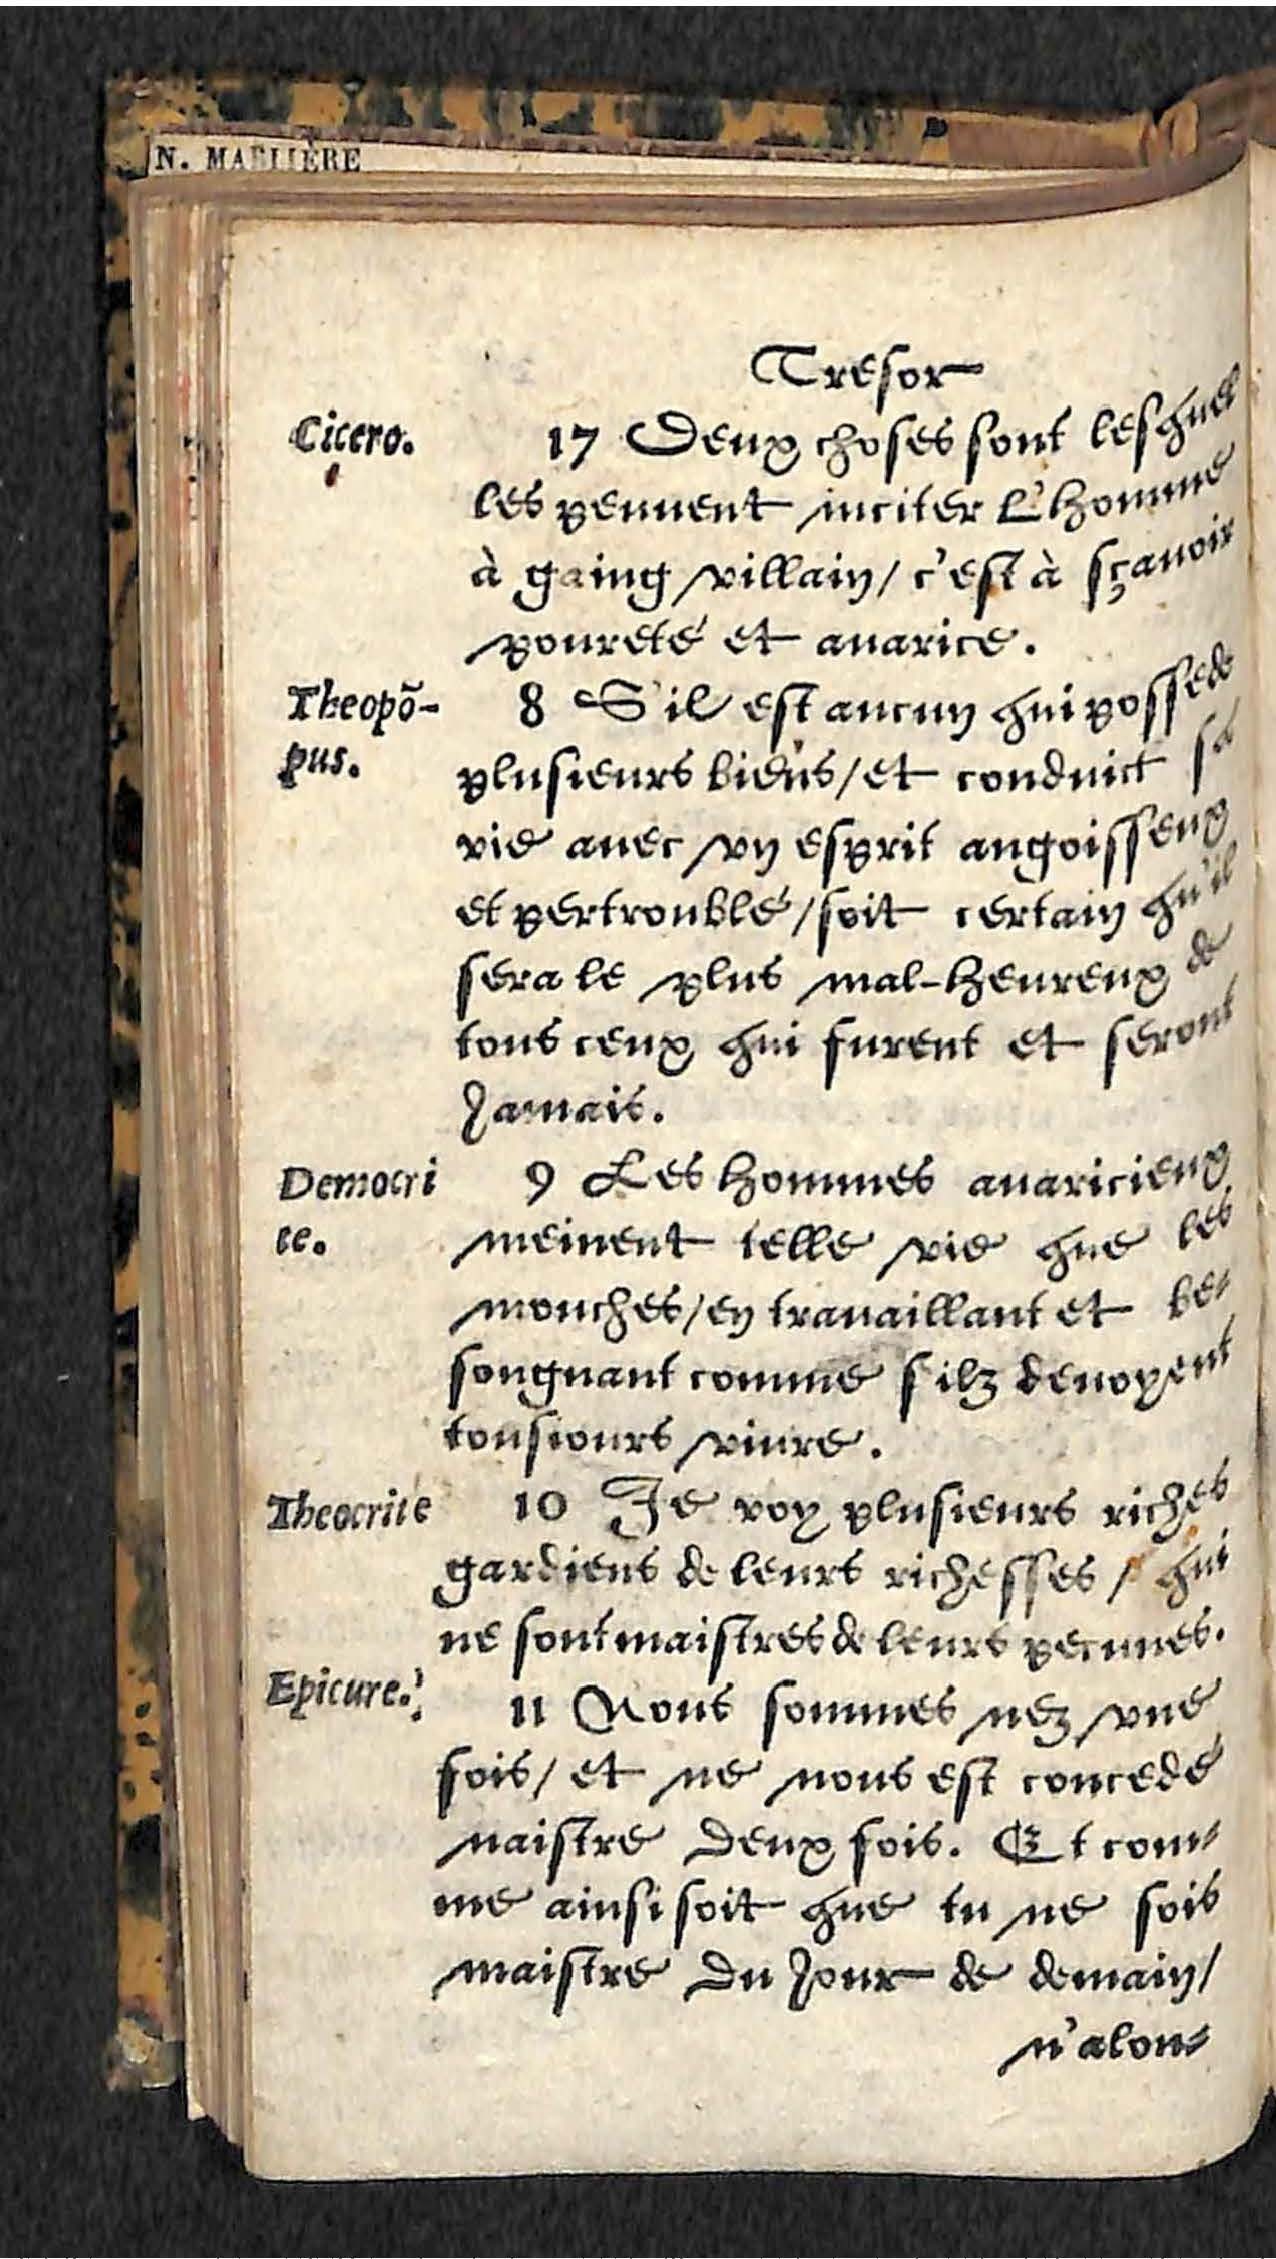 N. MARLIÈRE
Tresor
Cicero.
17 Deux choses sont lesquel
les peuuent inciter l'homme
à gaing villain/ c'est à sçauoir
poureté et auarice.
Theopõ-
pus.
8 S'il est aucun qui possede
plusieurs biens/ et conduict sa
vie auec vn esprit angoisseux
et pertroublé/ soit certain qu'il
sera le plus mal-heureux de
tous ceux qui furent et seront
Jamais.
Democri
te.
9 Les hommes auaricieux
meinent telle vie que les
mouches/ en trauaillant et be-
songnant comme s'ilz deuoyent
tousiours viure.
Theocrite
10 Je voy plusieurs riches
gardiens de leurs richesses / qui
ne sont maistres de leurs pecunes.
Epicure.
11 Nous sommes nez vne
fois/ et ne nous est concedé
naistre deux fois. Et com-
me ainsi soit que tu ne sois
maistre du Jour de demain/
n'alon-